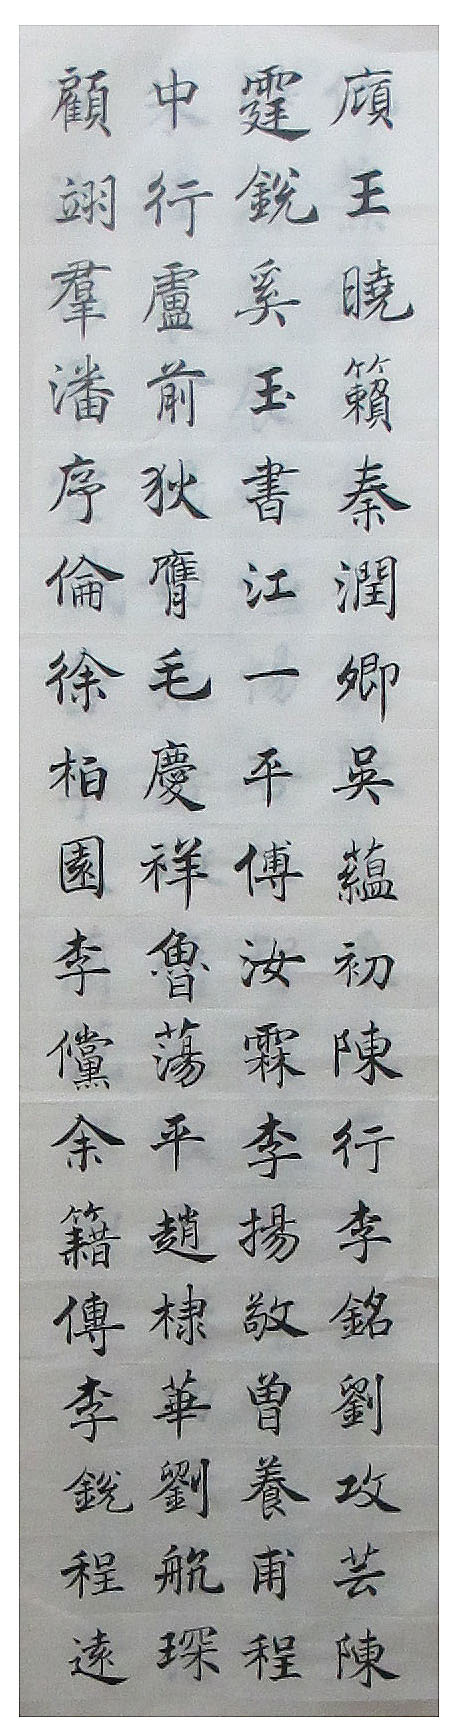 頎王曉籟秦潤卿吳蘊初陳行李銘劉攻芸陳
霆銳奚玉書江一平傅汝霖李揚敬曾養甫程
中行盧前狄膺毛慶祥魯蕩平趙棣華劉航琛
顧翊羣潘序倫徐柏園李儻余籍傳李銳程遠